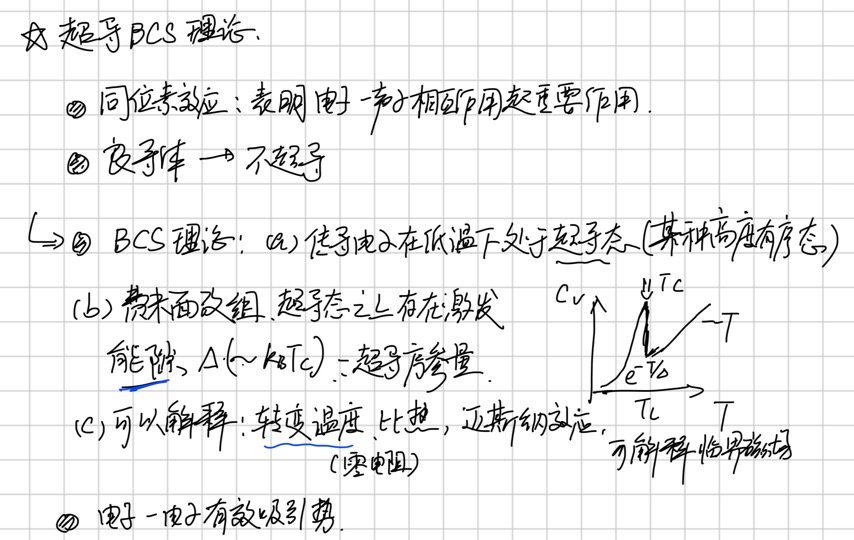 ☆ 超导BCS理论.
同位素效应：表明电子-声子相互作用起重要作用.
良导体 → 不超导
↳ BCS理论：(a) 传导电子在低温下处于超导态(某种高度有序态)
(b) 费米面改组、超导态之上存在激发
能隙、Δ(~kBTc) — 超导序参量.
Cv Tc ~T
e^-T/Δ
Tc T
(c) 可以解释：转变温度、比热，迈斯纳效应，可解释临界磁场
(零电阻)
电子-电子有效吸引势.